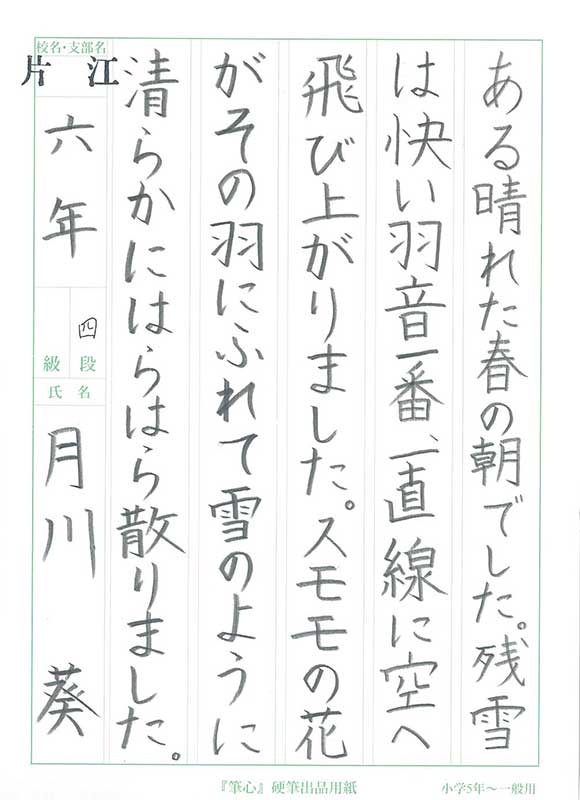 ある晴れた春の朝でした。残雪
は快い羽音一番、一直線に空へ
飛び上がりました。スモモの花
がその羽にふれて雪のように
清らかにはらはら散りました。
校名・支部名
片江
六年
四
級 段
氏名
月川 葵
『筆心』硬筆出品用紙
小学5年〜一般用